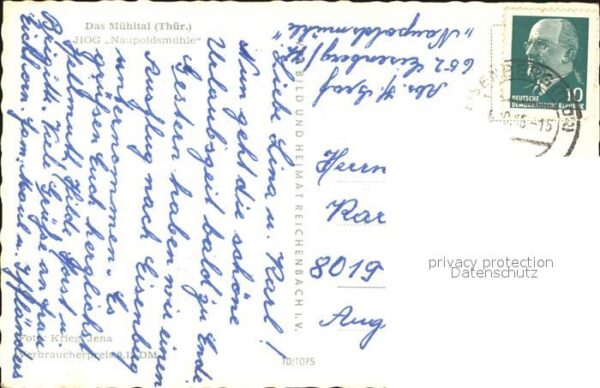 Das Mühltal (Thür.)
HOG „Naupoldsmühle"
Abs. H. Graf
652 Eisenberg/Th.
„Naupoldsmühle"
Liebe Lina u. Karl!
Nun geht die schöne
Urlaubszeit bald zu Ende.
Gestern haben wir einen
Ausflug nach Eisenberg
unternommen. Es
grüßen Euch herzlichst
Hellmuth, Hilde, Horst u.
Brigitte. Viele Grüße an Frau
Eichhorn, Fam. Maul u.
BILD UND HEIMAT REICHENBACH I. V.
DEUTSCHE
DEMOKRATISCHE REPUBLIK
10
-15
Herrn
Kar
8019
Aug
privacy protection
Datenschutz
Foto: Krieg, Jena
Verbraucherpreis 0,15 DM
10/1075